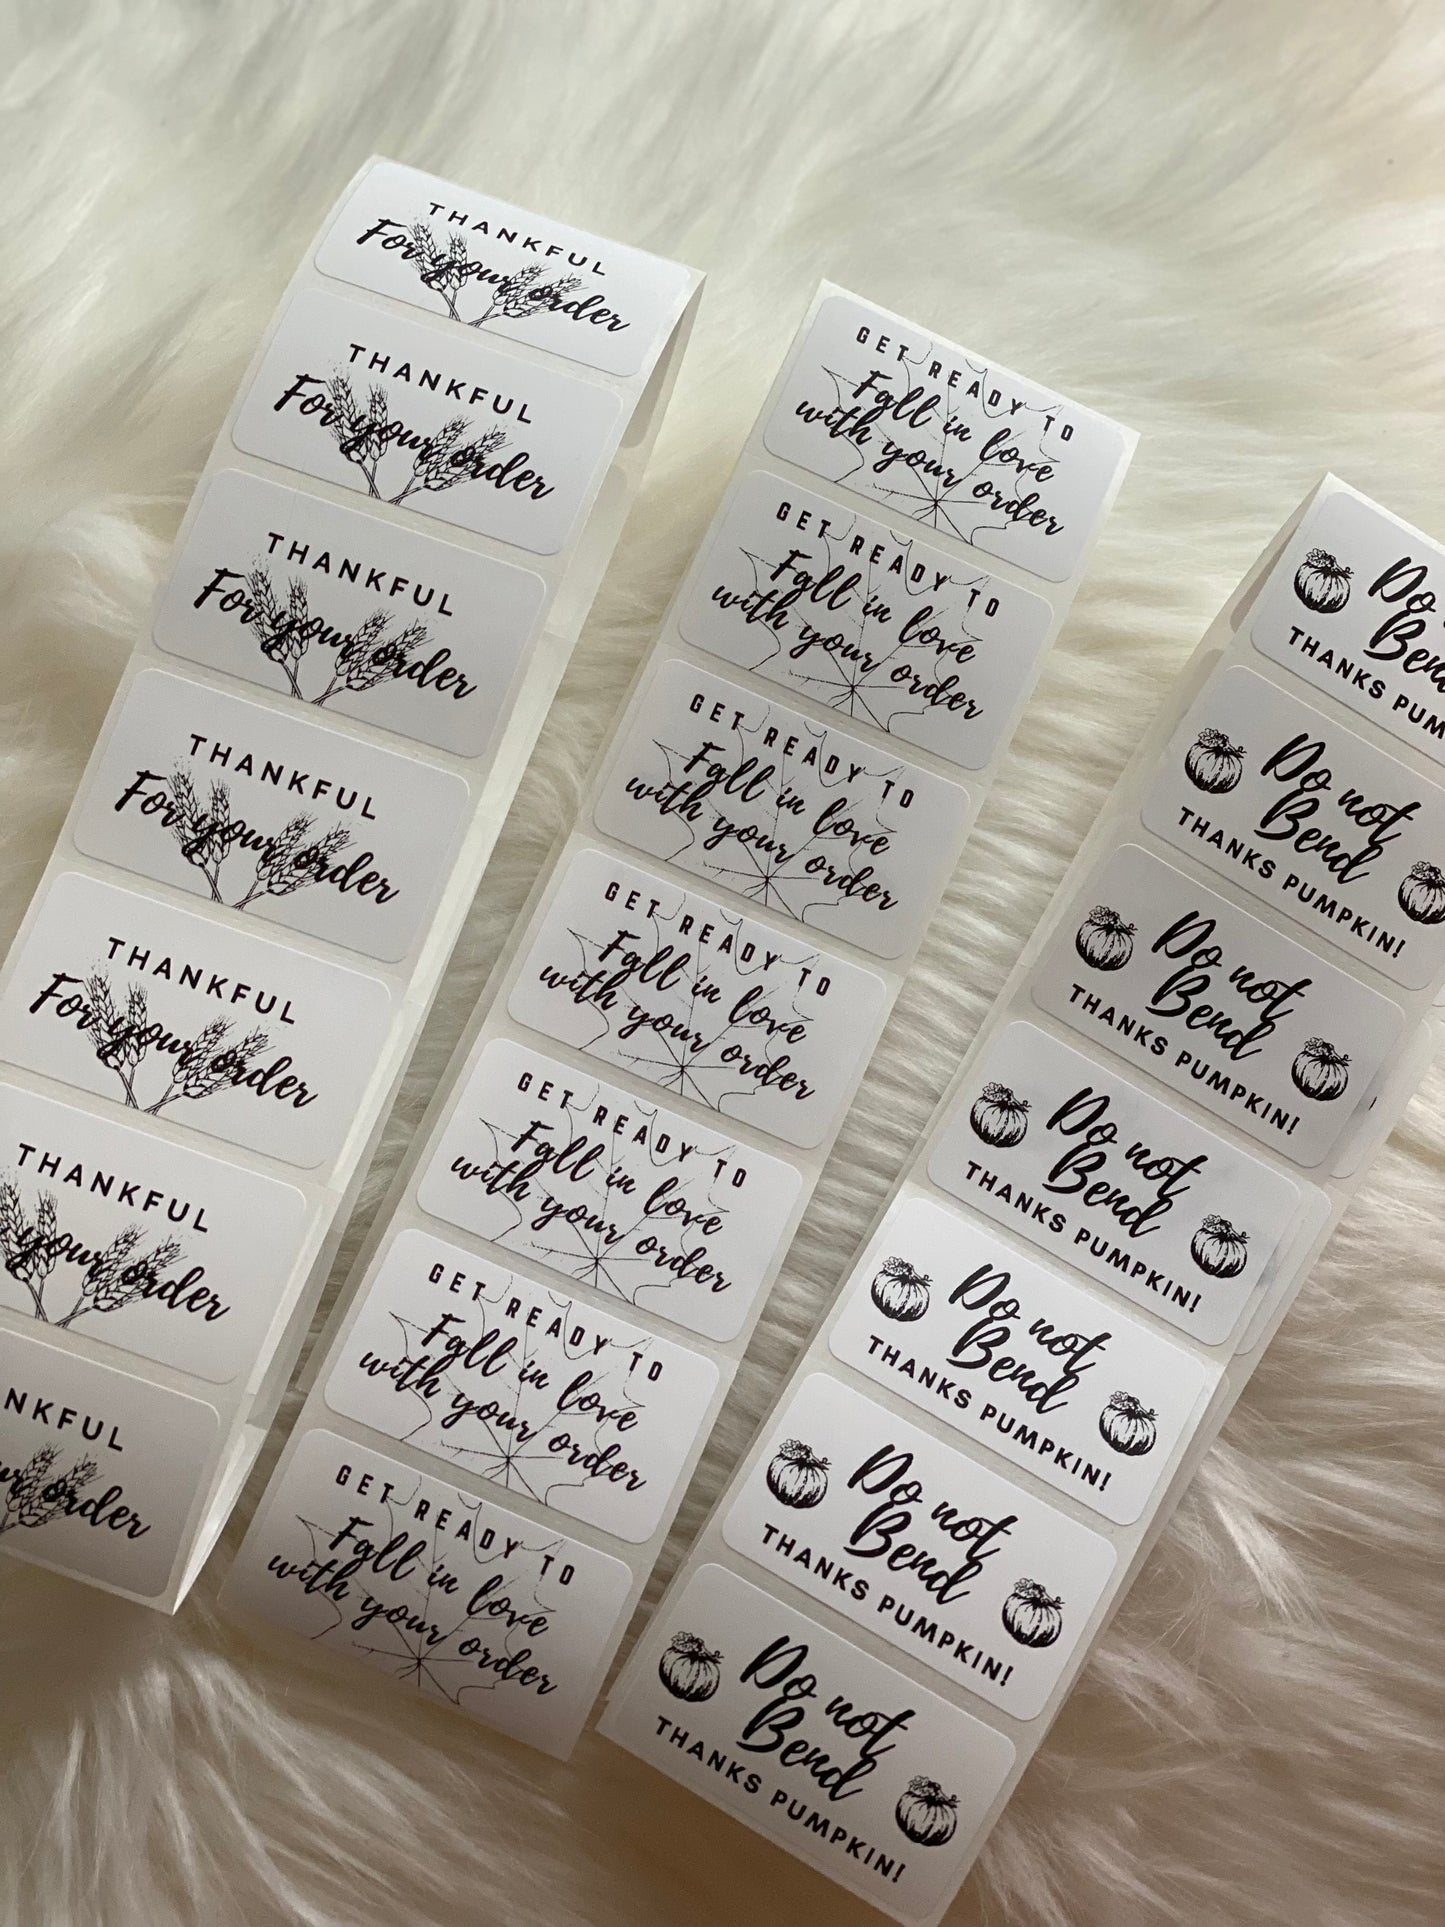 THANKFUL
For your order
THANKFUL
For your order
THANKFUL
For your order
THANKFUL
For your order
THANKFUL
For your order
THANKFUL
your order
NKFUL
order
GET READY TO
Fall in love
with your order
GET READY TO
Fall in love
with your order
GET READY TO
Fall in love
with your order
GET READY TO
Fall in love
with your order
GET READY TO
Fall in love
with your order
GET READY TO
Fall in love
with your order
GET READY TO
Fall in love
with your order
Do
Ben
THANKS PUM
Do not
Bend
THANKS PUMPKIN!
Do not
Bend
THANKS PUMPKIN!
Do not
Bend
THANKS PUMPKIN!
Do not
Bend
THANKS PUMPKIN!
Do not
Bend
THANKS PUMPKIN!
Do not
Bend
THANKS PUMPKIN!